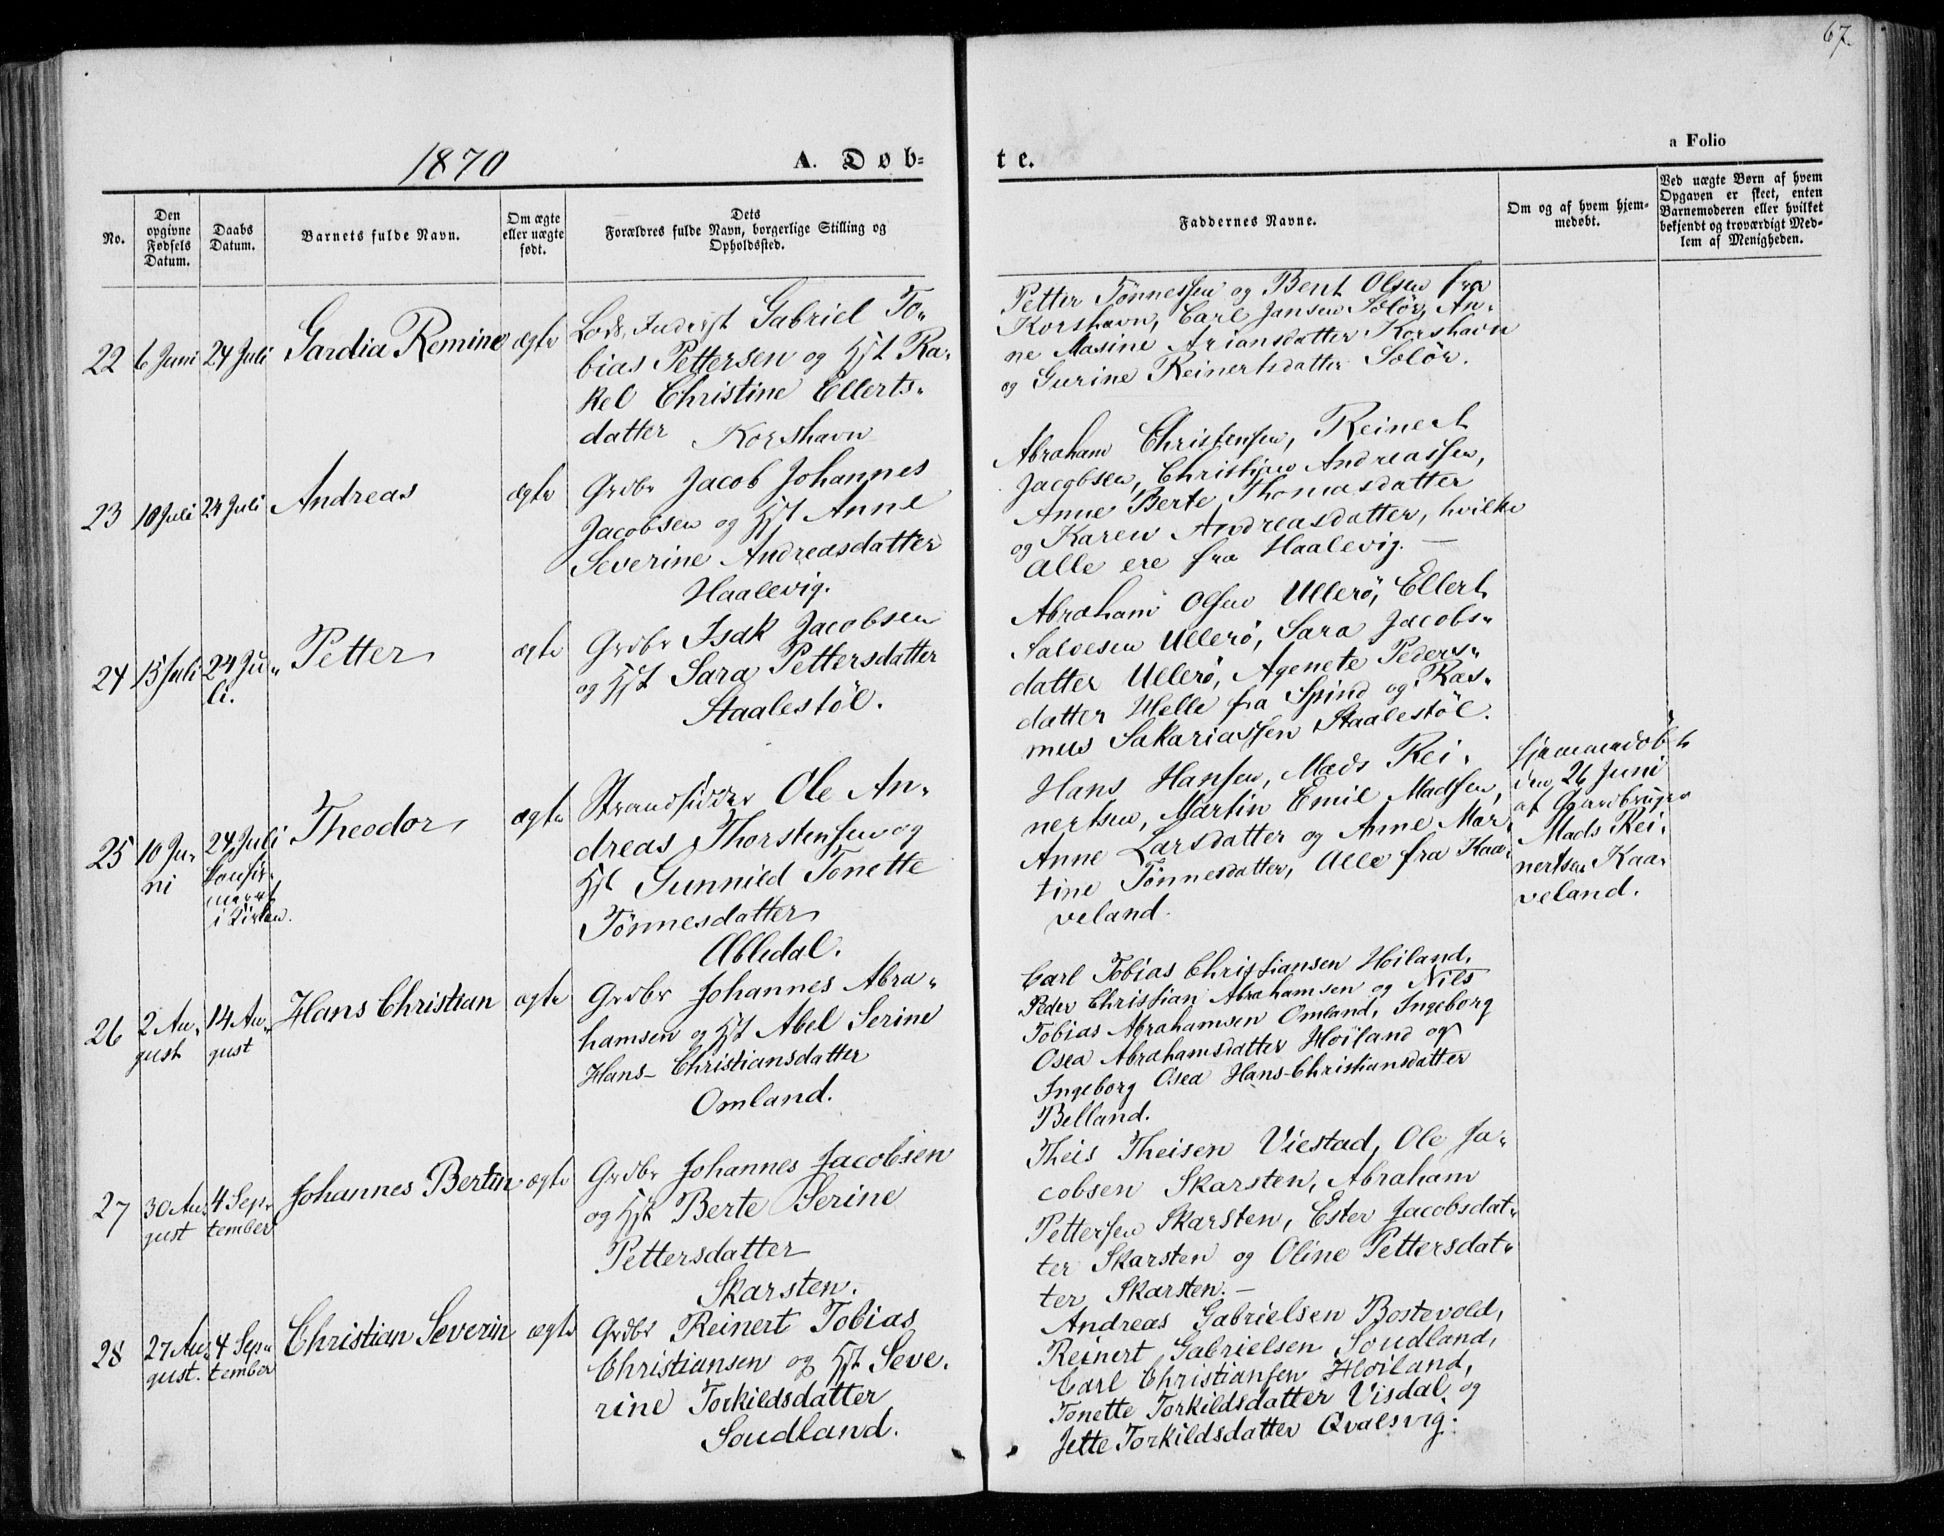 67.
1870
A. Døb-
te.
a Folio
No.
Den
opgivne
Fødsels
Datum.
Daabs
Datum.
Barnets fulde Navn.
Om ægte
eller uægte
født.
Dets
Forældres fulde Navn, borgerlige Stilling og
Opholdssted.
Faddernes Navne.
Om og af hvem hjem-
medøbt.
Ved uægte Børn af hvem
Opgaven er skeet, enten
Barnemoderen eller hvilket
bekjendt og troværdigt Med-
lem af Menigheden.
22
6 Juni
24 Juli
Gardia Remine
ægte
Gabriel To-
bias Pettersen og Hst Ra-
kel Christine Ellerts-
datter Korshavn
Petter Tønnessen og Bent Olsen fra
Korshavn, Carl Jansen Selør, An-
ne Masine Ariansdatter Korshavn
og Gurine Reinertsdatter Selør.
23
10 Juli
24 Juli
Andreas
ægte
Grdbr Jacob Johannes
Jacobsen og Hst Anne
Severine Andreasdatter
Haalevig.
Abraham Christensen, Reinert
Jacobsen, Christian Andreassen,
Anne Berte Thomasdatter
og Karen Andreasdatter, hvilke
alle ere fra Haalevig. —
24
15 Juli
24 Ju-
li.
Petter
ægte
Grdbr Isak Jacobsen
og Hst Sara Pettersdatter
Staalestøl.
Abraham Olsen Ullerø, Ellert
Salvesen Ullerø, Sara Jacobs-
datter Ullerø, Agenete Peders-
datter Helle fra Spind og Ras-
mus Sakariassen Staalestøl.
25
10 Ju-
ni
24 Juli
Konfir-
meret
i Kirken.
Theodor
ægte
Strandsidder Ole An-
dreas Thorstensen og
Hst Gunnild Tonette
Tønnesdatter
Abledal.
Hans Hansen, Mads Rei-
nertsen, Martin Emil Madsen,
Anne Larsdatter og Anne Mar-
tine Tønnesdatter, Alle fra Kaa-
veland.
Hjemmedøbt
den 26 Juni
af Gaardbruger
Mads Rei-
nertsen Kaa-
veland.
26
2 Au-
gust
14 Au-
gust
Hans Christian
ægte
Grdbr Johannes Abra-
hamsen og Hst Abel Serine
Hans-Christiansdatter
Omland.
Carl Tobias Christiansen Høiland,
Peder Christian Abrahamsen og Nils
Tobias Abrahamsen Omland, Ingeborg
Osea Abrahamsdatter Høiland og
Ingeborg Osea Hans-Christiansdatter
Belland.
27
30 Au-
gust
4 Sep-
tember
Johannes Bertin
ægte
Grdbr Johannes Jacobsen
og Hst Berte Serine
Pettersdatter
Skarsten.
Theis Theisen Viestad, Ole Ja-
cobsen Skarsten, Abraham
Pettersen Skarsten, Ester Jacobsdat-
ter Skarsten og Oline Pettersdat-
ter Skarsten. —
28
27 Au-
gust.
4 Sep-
tember
Christian Severin
ægte
Grdbr Reinert Tobias
Christiansen og Hst Seve-
rine Torkildsdatter
Soudland.
Andreas Gabrielsen Bostevold,
Reinert Gabrielsen Soudland,
Carl Christiansen Høiland,
Tonette Torkildsdatter Visdal og
Jette Torkildsdatter Qvalsvig.